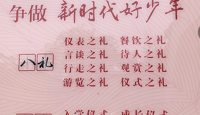 争做 新时代好少年
八礼
仪表之礼 餐饮之礼
言谈之礼 待人之礼
行走之礼 观赏之礼
游览之礼 仪式之礼
入学仪式 成长仪式